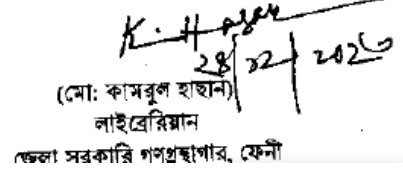 K. Hasan
28/02/2023
(মো: কামরুল হাছান)
লাইব্রেরিয়ান
জেলা সরকারি গণগ্রন্থাগার, ফেনী